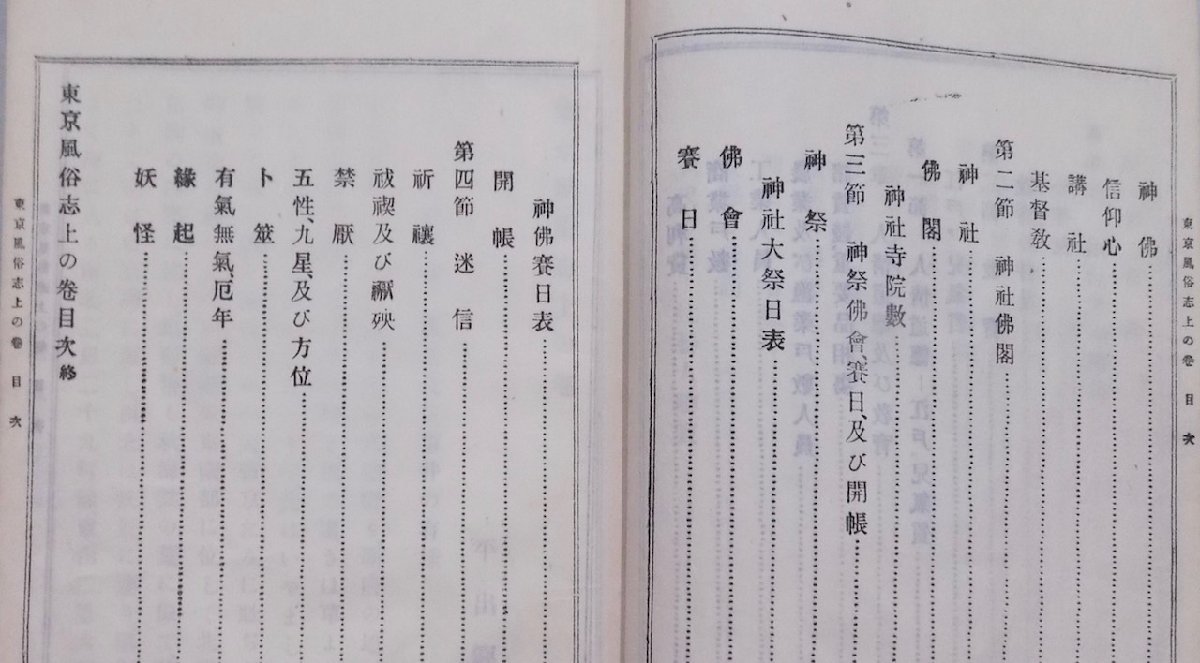 東京風俗志上の卷　目次
神佛
信仰心
講社
基督敎
第二節　神社佛閣
神社
佛閣
神社寺院數
第三節　神祭佛會、賽日、及び開帳
神祭
神社大祭日表
佛會
賽日
神佛賽日表
開帳
第四節　迷信
祈禳
祓禊及び禳殃
禁厭
五性、九星、及び方位
卜筮
有氣無氣、厄年
緣起
妖怪
東京風俗志上の卷目次終
東京風俗志上の卷　目次